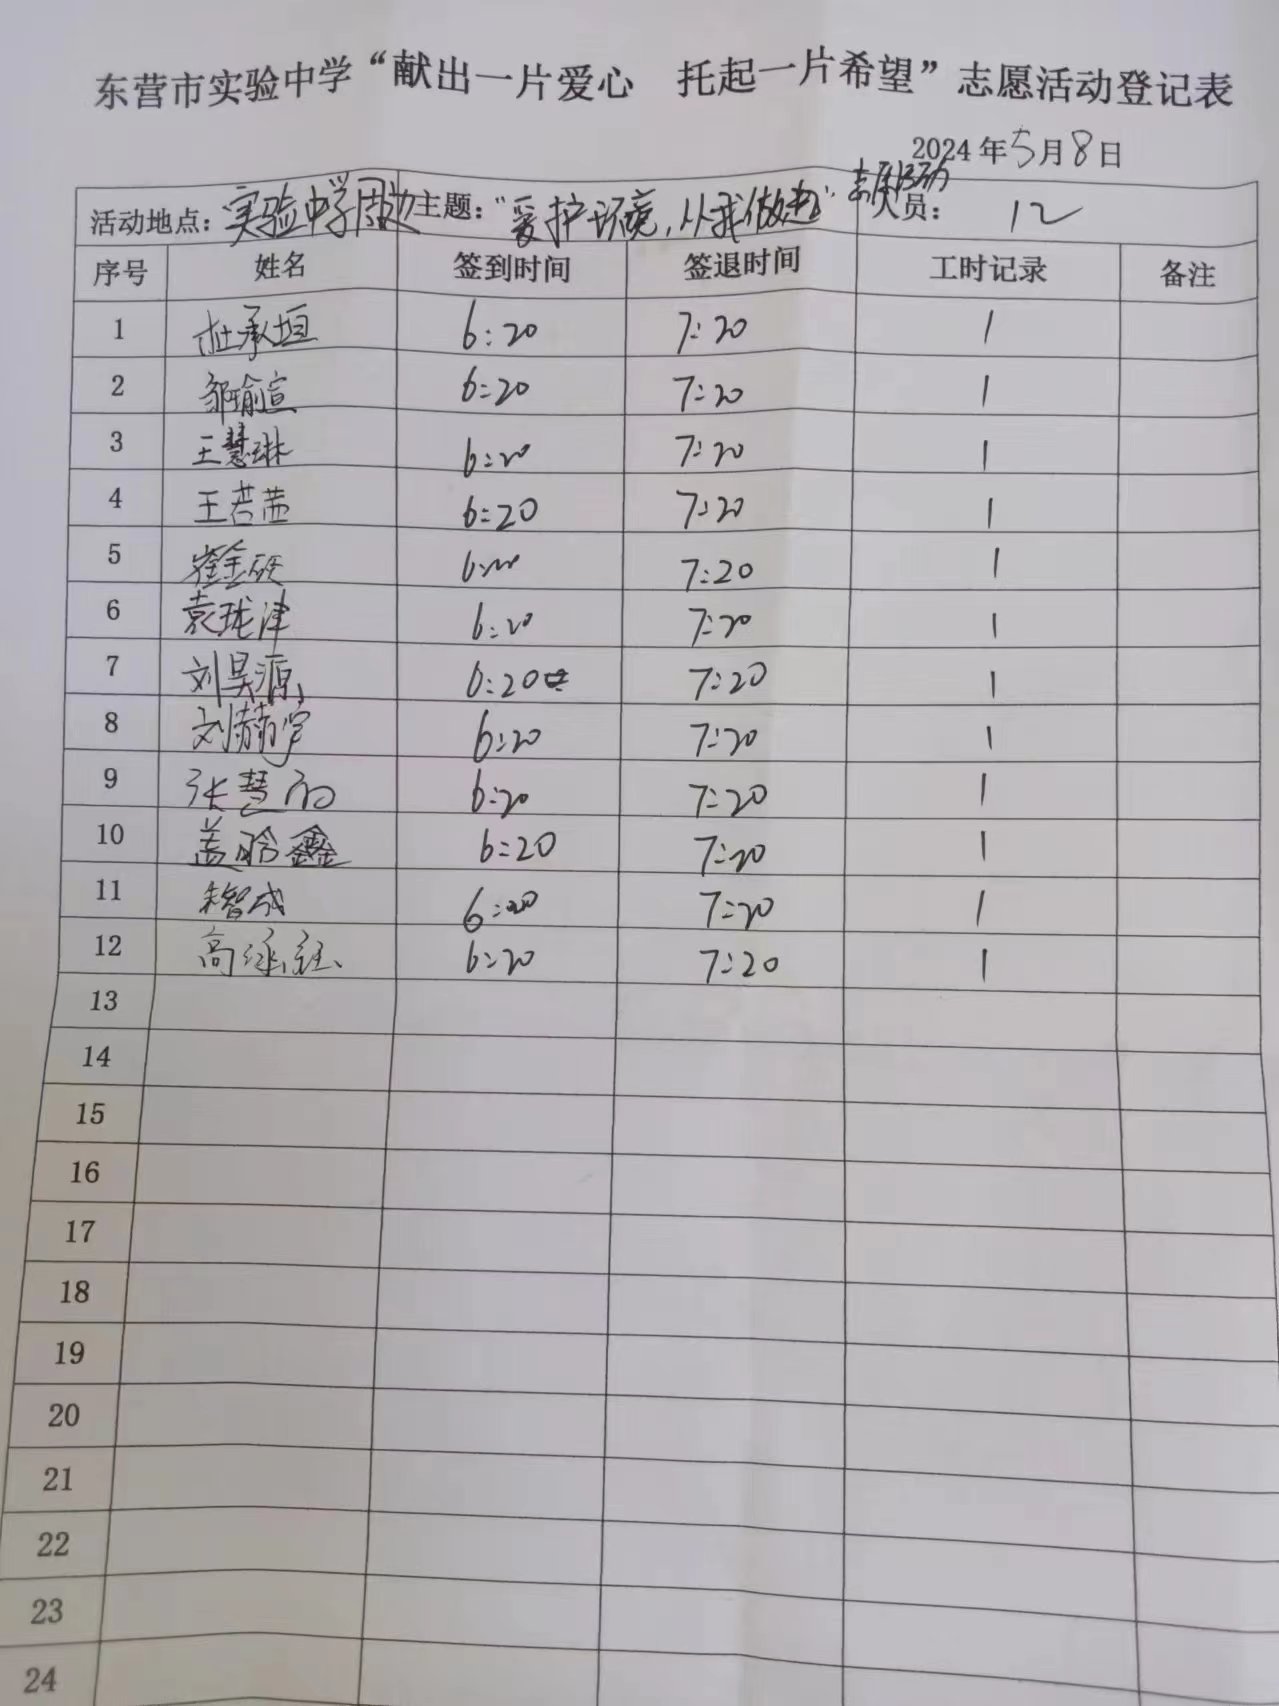 东营市实验中学“献出一片爱心 托起一片希望”志愿活动登记表
2024年5月8日
活动地点：实验中学周边 主题：“爱护环境，从我做起”志愿活动 人员：12
序号 姓名 签到时间 签退时间 工时记录 备注
1 杜承垣 6:20 7:20 1
2 邹瑜宣 6:20 7:20 1
3 王慧琳 6:20 7:20 1
4 王若茜 6:20 7:20 1
5 崔金硕 6:20 7:20 1
6 袁珑津 6:20 7:20 1
7 刘昊源 6:20 7:20 1
8 刘 6:20 7:20 1
9 张慧 6:20 7:20 1
10 盖晗鑫 6:20 7:20 1
11 朱智成 6:20 7:20 1
12 高 6:20 7:20 1
13
14
15
16
17
18
19
20
21
22
23
24